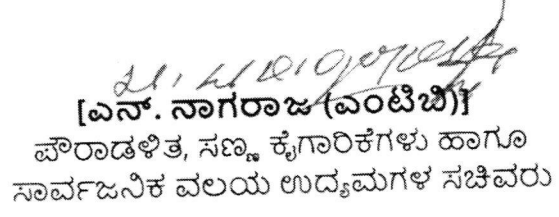 [ಎನ್. ನಾಗರಾಜ (ಎಂಟಿಬಿ)]
ಪೌರಾಡಳಿತ, ಸಣ್ಣ ಕೈಗಾರಿಕೆಗಳು ಹಾಗೂ
ಸಾರ್ವಜನಿಕ ವಲಯ ಉದ್ಯಮಗಳ ಸಚಿವರು